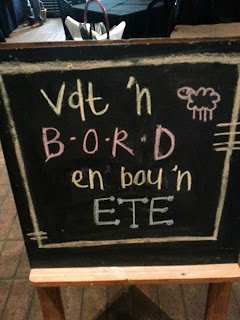 Vat 'n
B·O·R·D
en bou 'n
ETE